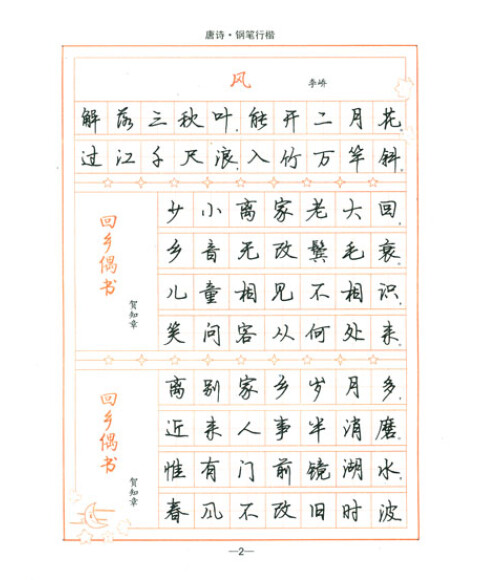 唐诗·钢笔行楷
风 李峤
解落三秋叶,能开二月花。
过江千尺浪,入竹万竿斜。
回乡偶书
贺知章
少小离家老大回,
乡音无改鬓毛衰。
儿童相见不相识,
笑问客从何处来。
回乡偶书
贺知章
离别家乡岁月多,
近来人事半消磨。
惟有门前镜湖水,
春风不改旧时波
—2—